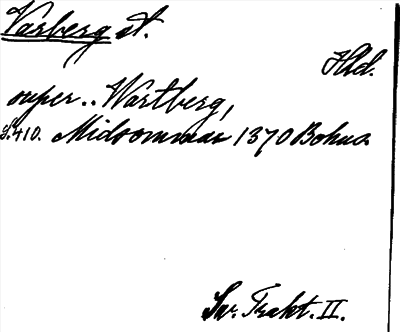 Varberg st.
Hld.
super.. Wartberg,
S.410. Midsommar 1370 Bohus
Sv. Trakt. II.